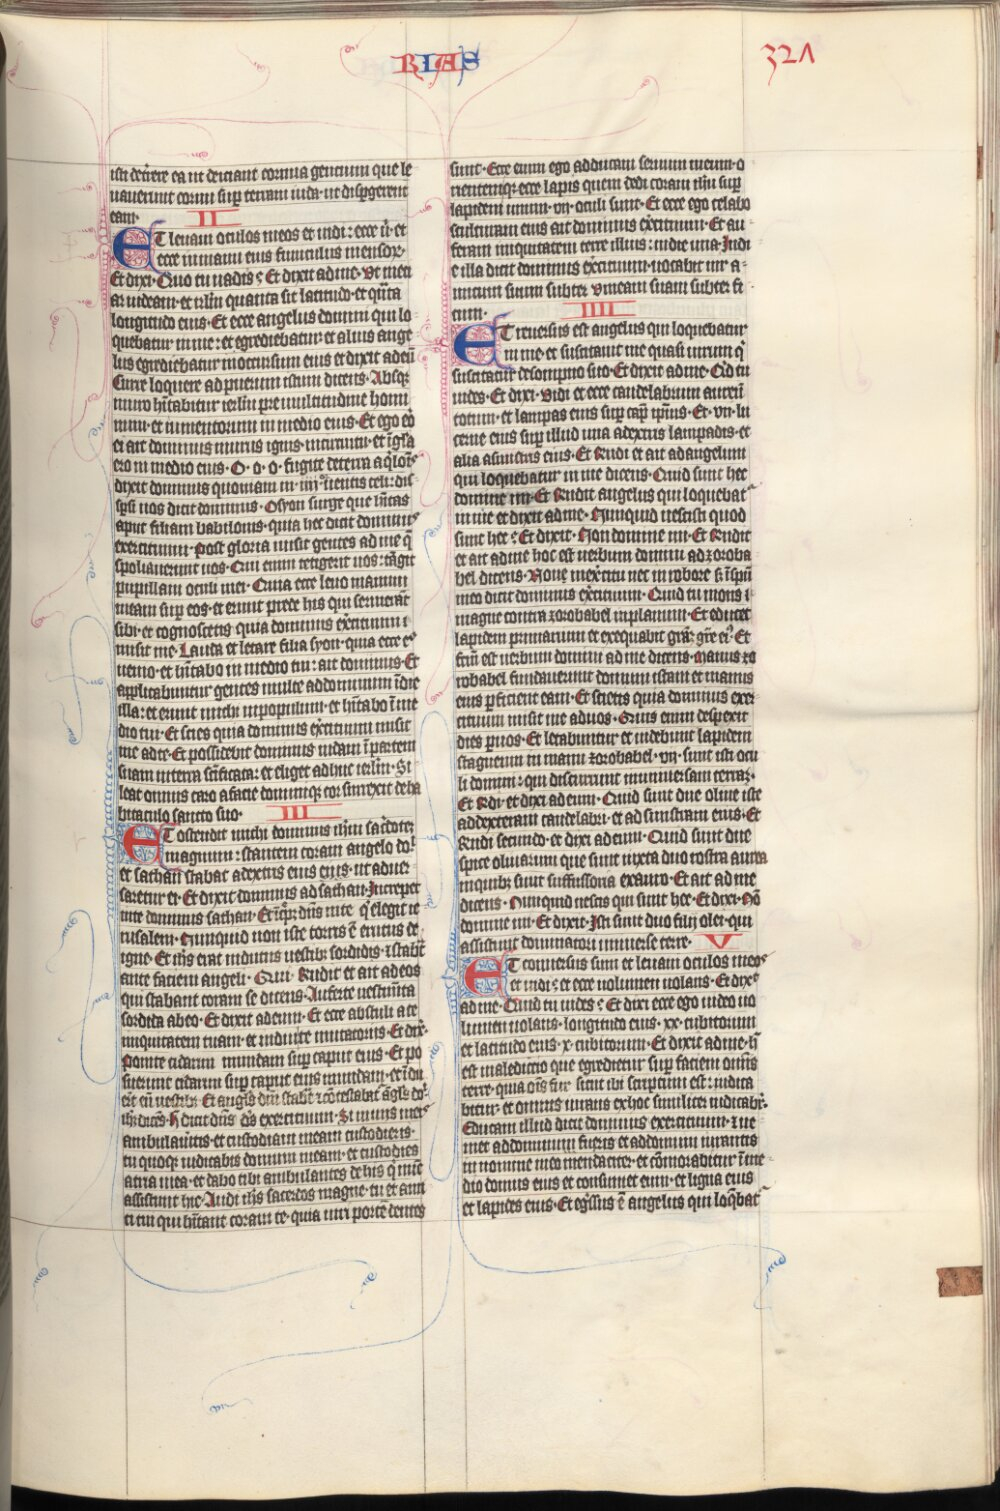 RIAS
321
isti deterere ea ut deiciant cornua gentium que le
uauerunt cornu sup terram iuda ut dispgerent
eam·
II
ET leuaui oculos meos et uidi: ecce uir et
ecce in manu eius funiculus mensorꝫ·
Et dixi· Quo tu uadis? Et dixit ad me· Vt meti
ar et uideam ierlm quanta sit latitudo· et quāta
longitudo eius· Et ecce angelus domini qui lo
quebatur in me: et egrediebatur· et alius ange
lus egrediebatur in occursum eius et dixit ad eū
Curre loquere ad puerum istum dicens· Absqꝫ
muro hītabitur ierlm pre multitudine homi
num· et iumentorum in medio eius· Et ego eo
ei ait dominus murus ignis in circuitu· et ī gla
ero in medio eius· O· o· o· fugite de terra aqlois
dixit dominus quoniam in iiii uentis celi dis
spsi uos dicit dominus· O syon surge que hītas
aput filiam babilonis· quia hec dicit dominus
exercituum· Post gloriā misit gentes ad me q̄
spoliauerunt uos· Qui enim tetigerit uos: tāgit
pupillam oculi mei· Quia ecce leuo manum
meam sup eos· et erunt prede his qui seruierāt
sibi· et cognoscetis quia dominus exercituum ·
misit me· Lauda et letare filia syon· quia ecce e
uenio· et hītabo in medio tui: ait dominus· Et
applicabuntur gentes multe ad dominum ī die
illa: et erunt michi in populum· et hītabo ī me
dio tui· Et scies quia dominus exercituum misit
me ad te· Et possidebit dominus iudam ī partem
suam in terra scificata: et eliget adhuc ierlm· Si
leat omnis caro a facie domini qꝫ consurrexit de ha
bitaculo sancto suo·
III
ET ostendit michi dominus ihm sacdotē
magnum: stantem coram angelo do
et sathan stabat a dextris eius eius· ut aduer
saretur ei· Et dixit dominus ad sathan· Increpet
inte dominus sathan· Et icpet dns in te q elegit ie
rusalem· Nunquid non iste torris ē erutus de
igne· Et ihs erat indutus uestibꝫ sordidis· ī stabat
ante faciem angeli· Qui· Rndit et ait ad eos
qui stabant coram se dicens· Auferte uestmīta
sordida ab eo· Et dixit ad eum· Et ecce abstuli a te
iniquitatem tuam· et indui te mutatoriis· Et dix·
Ponite cidarim mundam sup caput eius· Et po
suerunt cidarim sup caput eius mundam· et īdu
erūt eū uestibꝫ· Et angels dni stabat ī cōtestabat āgls do·
ihm dicēs· H dicit dns ds exercituum· Si in uiis meis
ambulaueris· et custodiam meam custodieris·
tu quoqꝫ iudicabis domum meam· et custodies
atria mea· et dabo tibi ambulantes de his q nūc
assistunt hic· Audi ihs sacerdos magne· tu et ami
ci tui qui hītant coram te· quia uiri portēdentes
sunt· Ecce enim ego adducam seruum meum·o
rientem qꝫ ecce lapis quem dedi coram ihu sup
lapidem unum· vii· oculi sunt· Et ecce ego celabo
sculturam eius ait dominus exercituum· Et au
feram iniquitatem terre illius: in die una· Indi
e illa dicit dominus exercituum· uocabit uir a-
micum suum subter uineam suam subter fi
cum·
IIII
ET reuersus est angelus qui loquebatur
in me· et suscitauit me quasi uirum q
suscitatur de sompno suo· Et dixit ad me· Qd tu
uides· Et dixi· Vidi et ecce candelabrum aureū
totum· et lampas eius sup caput ipsius· Et· vii· lu
cerne eius sup illud una a dextris lampadis· et
alia a sinistris eius· Et Rndi et ait ad angelum
qui loquebatur in me dicens· Quid sunt hec
domine mi· Et Rndit angelus qui loquebat
in me et dixit ad me· Nunquid nescis quod
sunt hec? Et dixit· Non domine mi· Et Rndit
et ait ad me hoc est uerbum domini ad zoroba
bel dicens· None in exercitu nec in robore s ī spū
meo dicit dominus exercituum· Quid tu mons ·
magne contra zorobabel in planum· Et educet
lapidem primarium et exequabit grām grē ei· Et
fcm est uerbum domini ad me dicens· Manus zo
robabel fundauerunt domum istam et manus
eius pficient eam· Et scietis quia dominus exer
cituum misit me ad uos· Quis enim despexit
dies puos· Et letabuntur et uidebunt lapidem
stagneum in manu zorobabel· vii· sunt isti ocu
li domini: qui discurrunt in uniuersam terrā·
Et Rndi· et dixi ad eum· Quid sunt due oliue iste
ad dexteram candelabri· et ad sinistram eius· Et
Rndi secundo· et dixi ad eum· Quid sunt due
spice oliuarum que sunt iuxta duo rostra aurea
in quibꝫ sunt suffusoria ex auro· Et ait ad me
dicens· Nunquid nescis qui sunt hec· Et dixi· Nō
domine mi· Et dixit· Isti sunt duo filij olei· qui
assistunt dominatori uniuerse terre·
V
ET conuersus sum et leuaui oculos meos
et uidi? et ecce uolumen uolans· Et dixit
ad me· Quid tu uides? Et dixi ecce ego uideo uo
lumen uolans· longitudo eius· xx· cubitorum
et latitudo eius· x· cubitorum· Et dixit ad me· h
est maledictio que egredietur sup faciem omīs
terre· quia ois fur sicut ibi scriptum est: iudica
bitur· et omnis iurans ex hoc similiter iudicabr·
Educam illud dicit dominus exercituum· ⁊ ue
niet ad domum furis et ad domum iurantis
in nomine meo mendaciter· et cōmorabitur ī me-
dio domus eius et consumet eum· et ligna eius
et lapides eius· Et egssus ē angelus qui loqbat